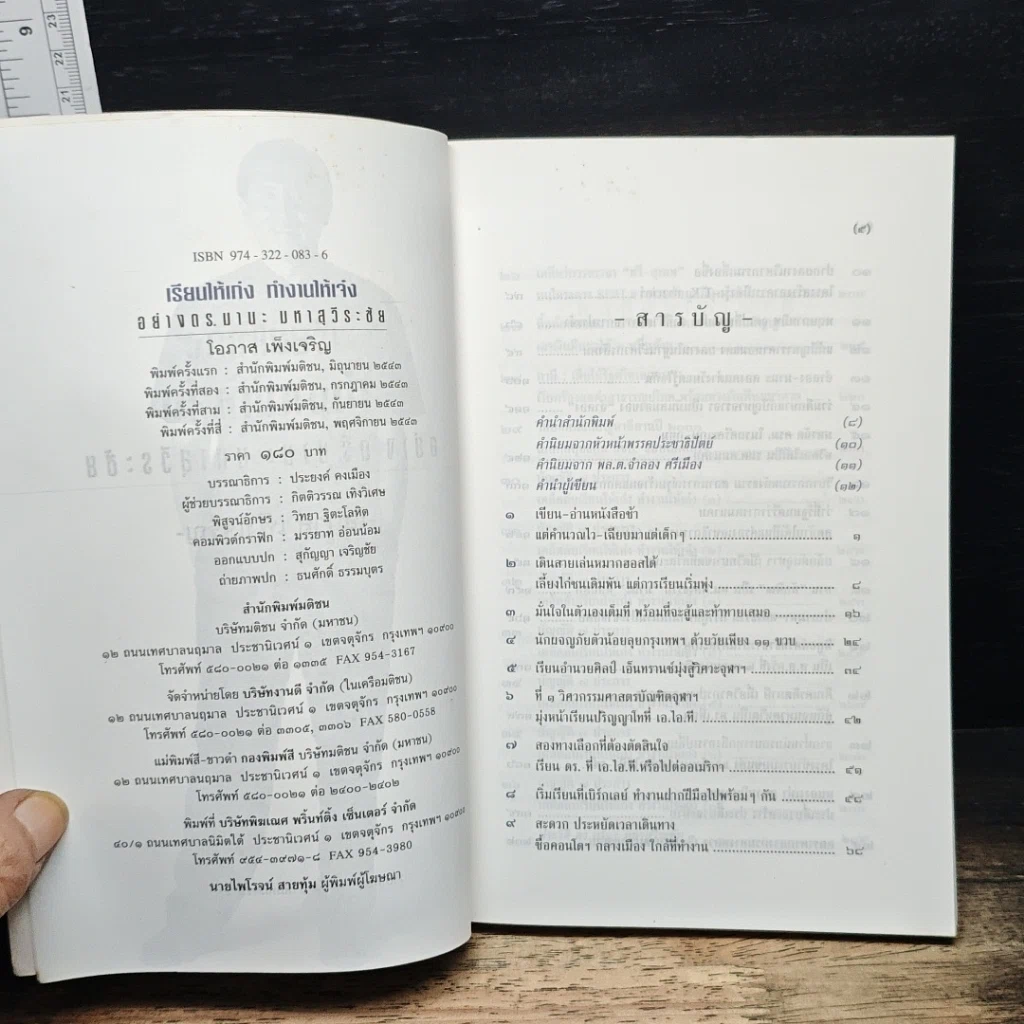 9
23
22
21
ISBN 974 - 322 - 083 - 6
เรียนให้เก่ง ทำงานให้เจ๋ง
อย่างดร.มานะ มหาสุวีระชัย
โอภาส เพ็งเจริญ
พิมพ์ครั้งแรก : สำนักพิมพ์มติชน, มิถุนายน ๒๕๔๓
พิมพ์ครั้งที่สอง : สำนักพิมพ์มติชน, กรกฎาคม ๒๕๔๓
พิมพ์ครั้งที่สาม : สำนักพิมพ์มติชน, กันยายน ๒๕๔๓
พิมพ์ครั้งที่สี่ : สำนักพิมพ์มติชน, พฤศจิกายน ๒๕๔๓
ราคา ๑๘๐ บาท
บรรณาธิการ : ประยงค์ คงเมือง
ผู้ช่วยบรรณาธิการ : กิตติวรรณ เทิงวิเศษ
พิสูจน์อักษร : วิทยา ฐิตะโลหิต
คอมพิวต์กราฟิก : มรรยาท อ่อนน้อม
ออกแบบปก : สุกัญญา เจริญชัย
ถ่ายภาพปก : ธนศักดิ์ ธรรมบุตร
สำนักพิมพ์มติชน
บริษัทมติชน จำกัด (มหาชน)
๑๒ ถนนเทศบาลนฤมาล ประชานิเวศน์ ๑ เขตจตุจักร กรุงเทพฯ ๑๐๙๐๐
โทรศัพท์ ๕๘๐-๐๐๒๑ ต่อ ๑๓๓๕ FAX 954-3167
จัดจำหน่ายโดย บริษัทงานดี จำกัด (ในเครือมติชน)
๑๒ ถนนเทศบาลนฤมาล ประชานิเวศน์ ๑ เขตจตุจักร กรุงเทพฯ ๑๐๙๐๐
โทรศัพท์ ๕๘๐-๐๐๒๑ ต่อ ๓๓๐๕, ๓๓๐๖ FAX 580-0558
แม่พิมพ์สี-ขาวดำ กองพิมพ์สี บริษัทมติชน จำกัด (มหาชน)
๑๒ ถนนเทศบาลนฤมาล ประชานิเวศน์ ๑ เขตจตุจักร กรุงเทพฯ ๑๐๙๐๐
โทรศัพท์ ๕๘๐-๐๐๒๑ ต่อ ๒๔๐๐-๒๔๐๒
พิมพ์ที่ บริษัทพิฆเณศ พริ้นท์ติ้ง เซ็นเตอร์ จำกัด
๔๐/๑ ถนนเทศบาลนิมิตใต้ ประชานิเวศน์ ๑ เขตจตุจักร กรุงเทพฯ ๑๐๙๐๐
โทรศัพท์ ๙๕๔-๓๙๗๑-๘ FAX 954-3980
นายไพโรจน์ สายทุ้ม ผู้พิมพ์ผู้โฆษณา
(๕)
- สารบัญ -
คำนำสำนักพิมพ์ (๘)
คำนิยมจากหัวหน้าพรรคประชาธิปัตย์ (๑๐)
คำนิยมจาก พล.ต.จำลอง ศรีเมือง (๑๑)
คำนำผู้เขียน (๑๒)
๑ เขียน-อ่านหนังสือช้า
แต่คำนวณไว-เฉียบมาแต่เด็กๆ ๑
๒ เดินสายเล่นหมากฮอสได้
เลี้ยงไก่ชนเดิมพัน แต่การเรียนเริ่มพุ่ง ๘
๓ มั่นใจในตัวเองเต็มที่ พร้อมที่จะสู้และท้าทายเสมอ ๑๖
๔ นักผจญภัยตัวน้อยลุยกรุงเทพฯ ด้วยวัยเพียง ๑๑ ขวบ ๒๔
๕ เรียนอำนวยศิลป์ เอ็นทรานซ์มุ่งสู่วิศวะจุฬาฯ ๓๔
๖ ที่ ๑ วิศวกรรมศาสตรบัณฑิตจุฬาฯ
มุ่งหน้าเรียนปริญญาโทที่ เอ.ไอ.ที. ๔๒
๗ สองทางเลือกที่ต้องตัดสินใจ
เรียน ดร. ที่ เอ.ไอ.ที.หรือไปต่ออเมริกา ๕๑
๘ เริ่มเรียนที่เบิร์กเลย์ ทำงานฝากฝีมือไปพร้อมๆ กัน ๕๘
๙ สะดวก ประหยัดเวลาเดินทาง
ซื้อคอนโดฯ กลางเมือง ใกล้ที่ทำงาน ๖๘